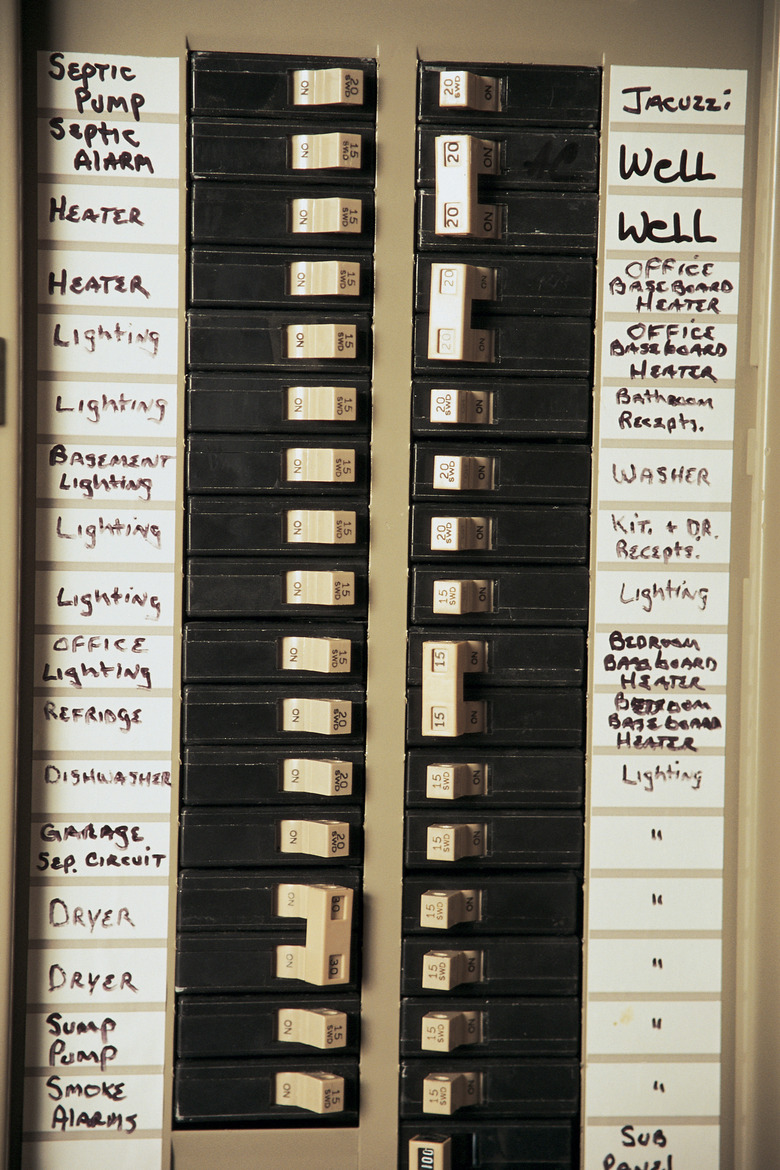 SEPTIC
PUMP
SEPTIC
ALARM
HEATER
HEATER
Lighting
Lighting
BASEMENT
Lighting
Lighting
Lighting
OFFICE
Lighting
REFRIDGE
DISHWASHER
GARAGE
SEP. CIRCUIT
DRYER
DRYER
SUMP
PUMP
SMOKE
ALARMS
ON 20 SWD
ON 15 SWD
ON 15 SWD
ON 15 SWD
ON 15 SWD
ON 15 SWD
ON 15 SWD
ON 15 SWD
ON 15 SWD
ON 15 SWD
ON 20 SWD
ON 20 SWD
ON 20 SWD
ON 30
ON 30
ON 15 SWD
ON 15 SWD
20 SWD ON
20 ON
20 ON
20 ON
20 ON
20 SWD ON
20 SWD ON
20 SWD ON
15 SWD ON
15 ON
15 ON
15 SWD ON
15 SWD ON
15 SWD ON
15 SWD ON
15 SWD ON
15 SWD ON
100
JACUZZi
WELL
WELL
OFFICE
BASEBOARD
HEATER
OFFICE
BASEBOARD
HEATER
Bathroom
Recepts.
WASHER
KIT. + DR.
Recepts.
Lighting
BEDROOM
BASEBOARD
HEATER
BEDROOM
BASEBOARD
HEATER
Lighting
"
"
"
"
"
SUB
PANEL